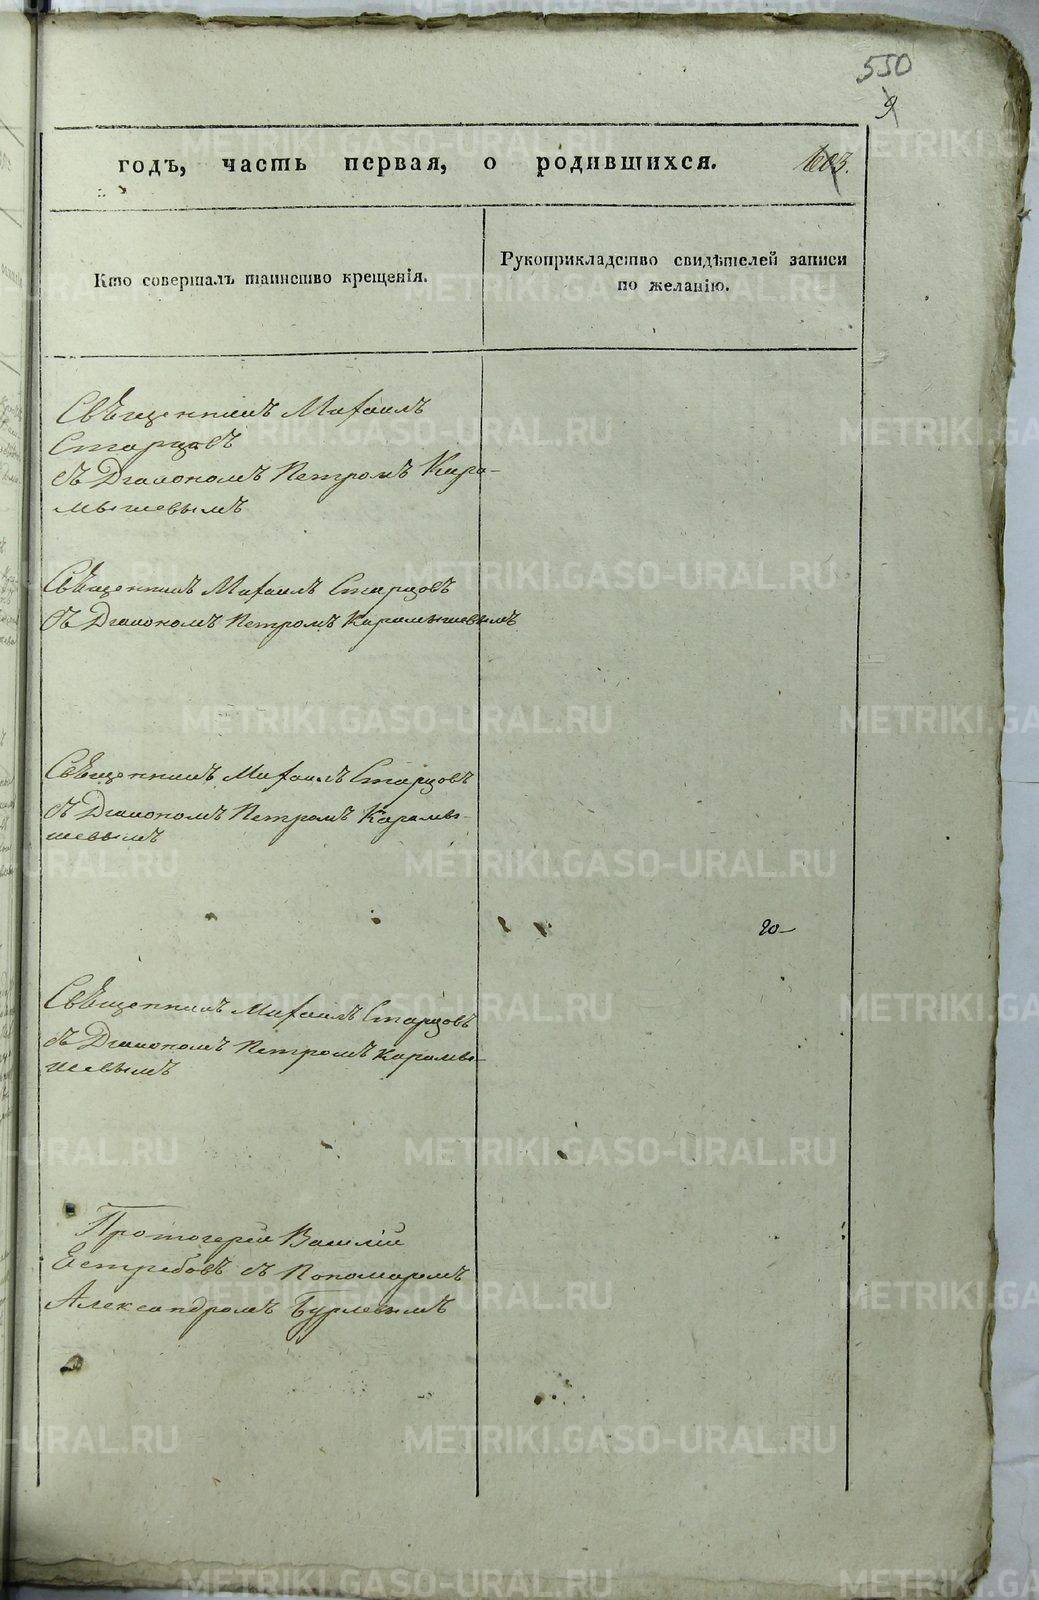 550
9
годъ, часть первая, о родившихся. 603.
Кто совершалъ таинство крещенія.
Рукоприкладство свидѣтелей записи
по желанію.
Свѣщенникъ Михаилъ
Старцовъ
съ Дїакономъ Петромъ Кара-
мышевымъ
Свѣщенникъ Михаилъ Старцовъ
съ Дїакономъ Петромъ Карамышевымъ
Свѣщенникъ Михаилъ Старцовъ
съ Дїакономъ Петромъ Карамы-
шевымъ
20
Свѣщенникъ Михаилъ Старцовъ
съ Дїакономъ Петромъ Карамы-
шевымъ
Протоїерей Василїй
Естребовъ съ Пономаремъ
Александромъ Бурлевымъ
METRIKI.GASO-URAL.RU